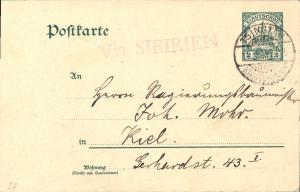 Postkarte
KIAUTSCHOU
2
Via SIBIRIEN
TSINGTAU
An
Herrn Regierungsbaumeister
Joh. Mohr.
in Kiel.
Wohnung
(Straße und Hausnummer)
Gerhardst. 43. I.